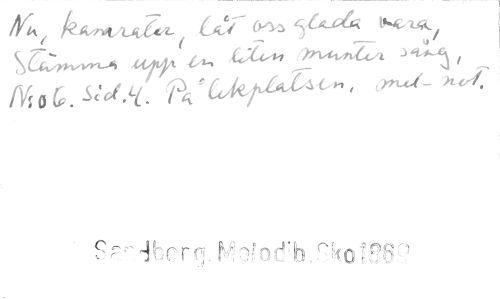 Nu, kamrater, låt oss glada vara,
Stämma upp en liten munter sång,
N:o 6. Sid. 4. På lekplatsen, mel-not.
Sandberg. Melodib. Sko 1869